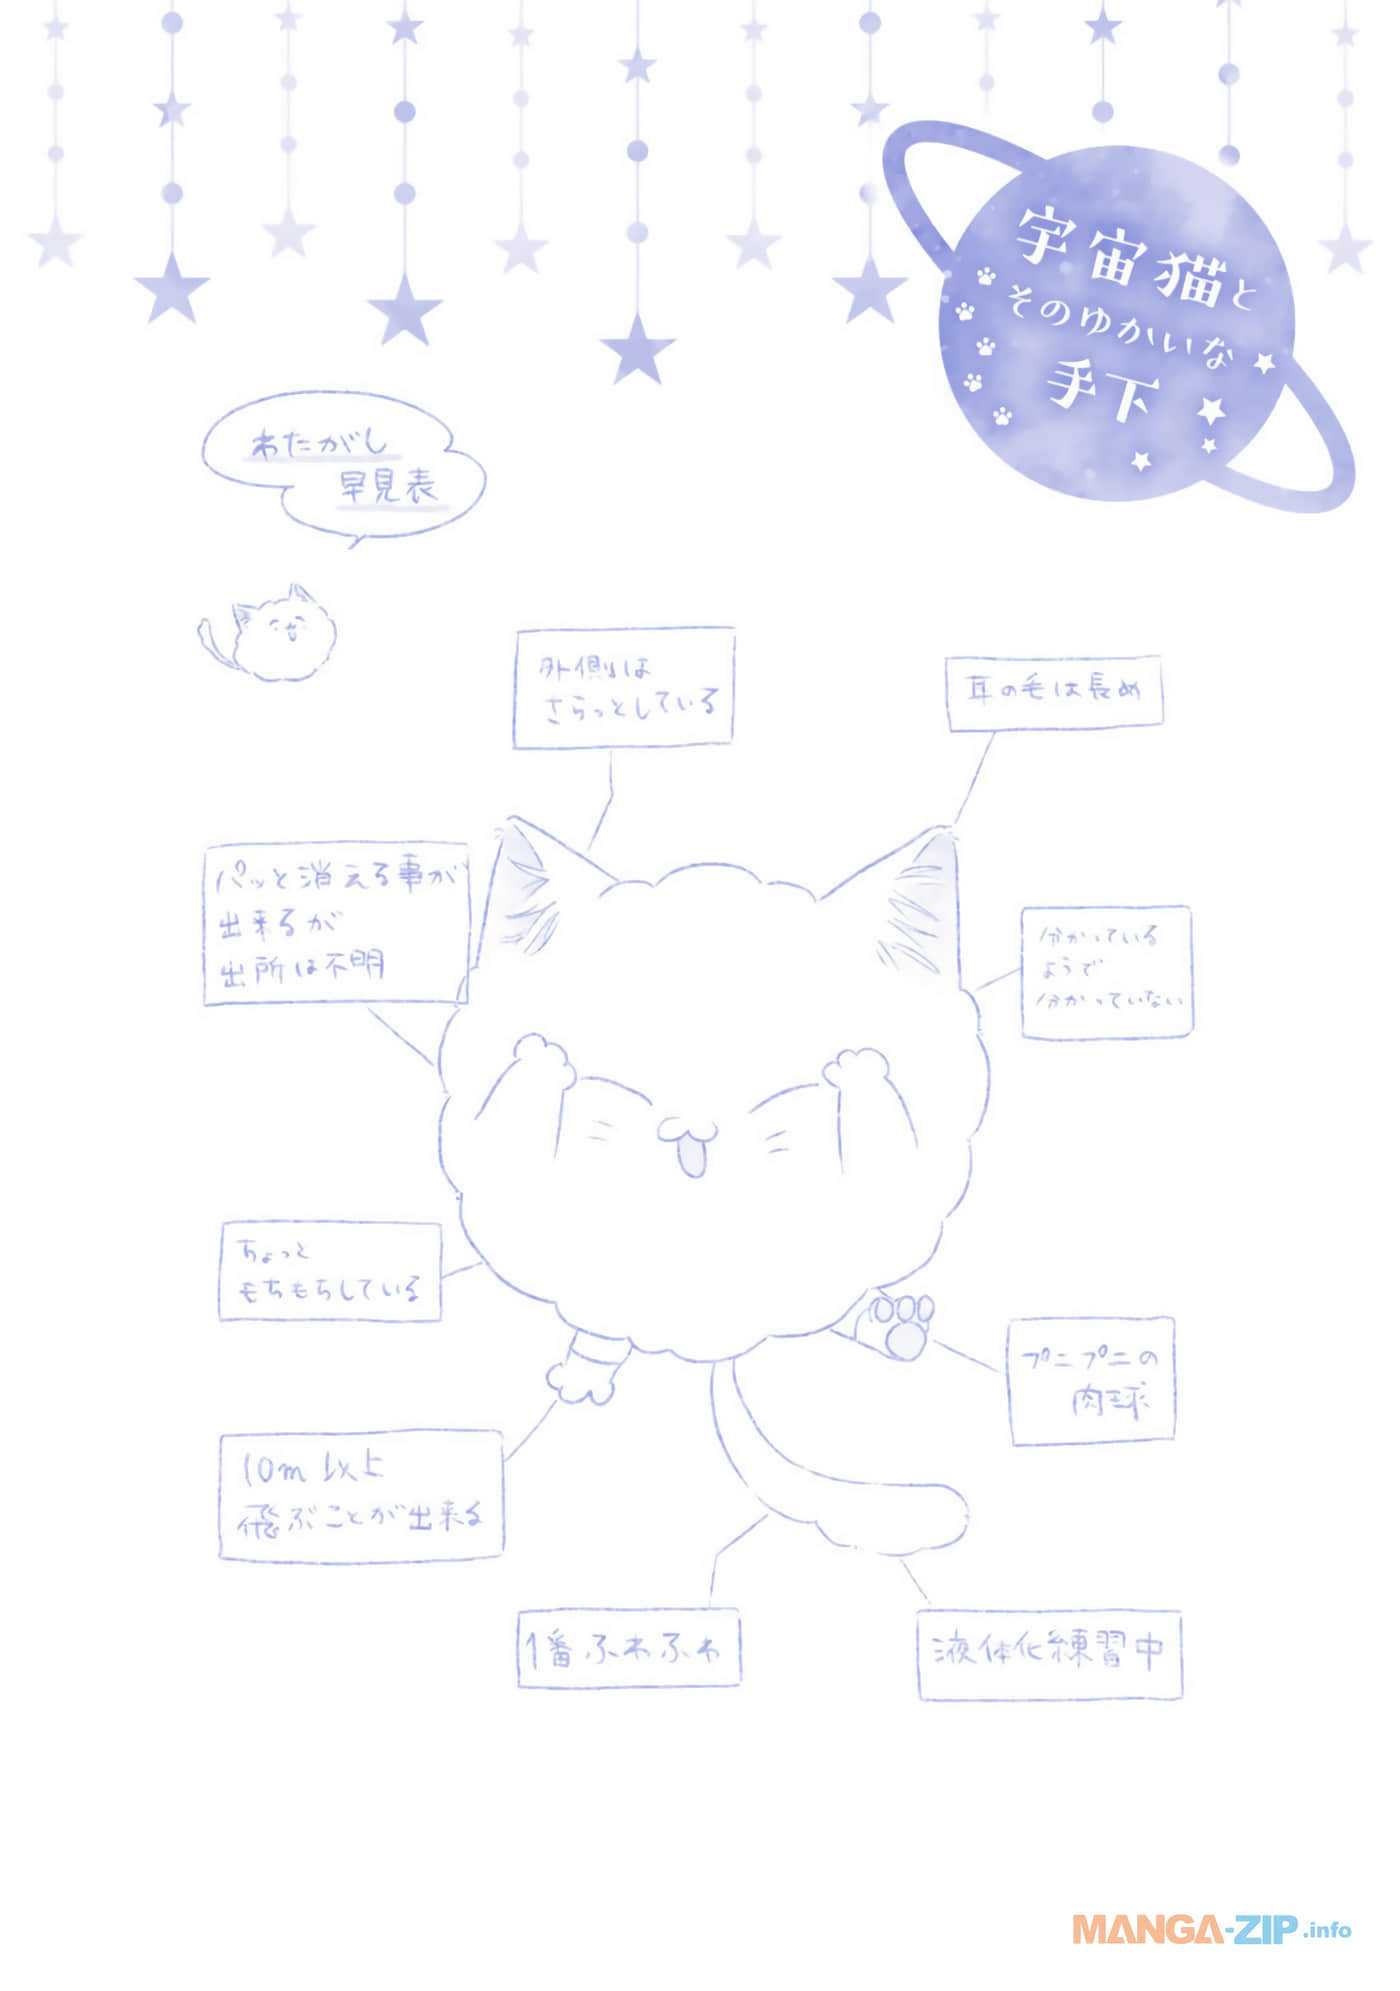 宇宙猫と
そのゆかいな
手下
わたがし
早見表
外側は
さらっとしている
耳の毛は長め
パッと消える事が
出来るが
出所は不明
分かっている
ようで
分かっていない
ちょっと
もちもちしている
プニプニの
肉球
10m以上
飛ぶことが出来る
1番ふわふわ
液体化練習中
MANGA-ZIP.info